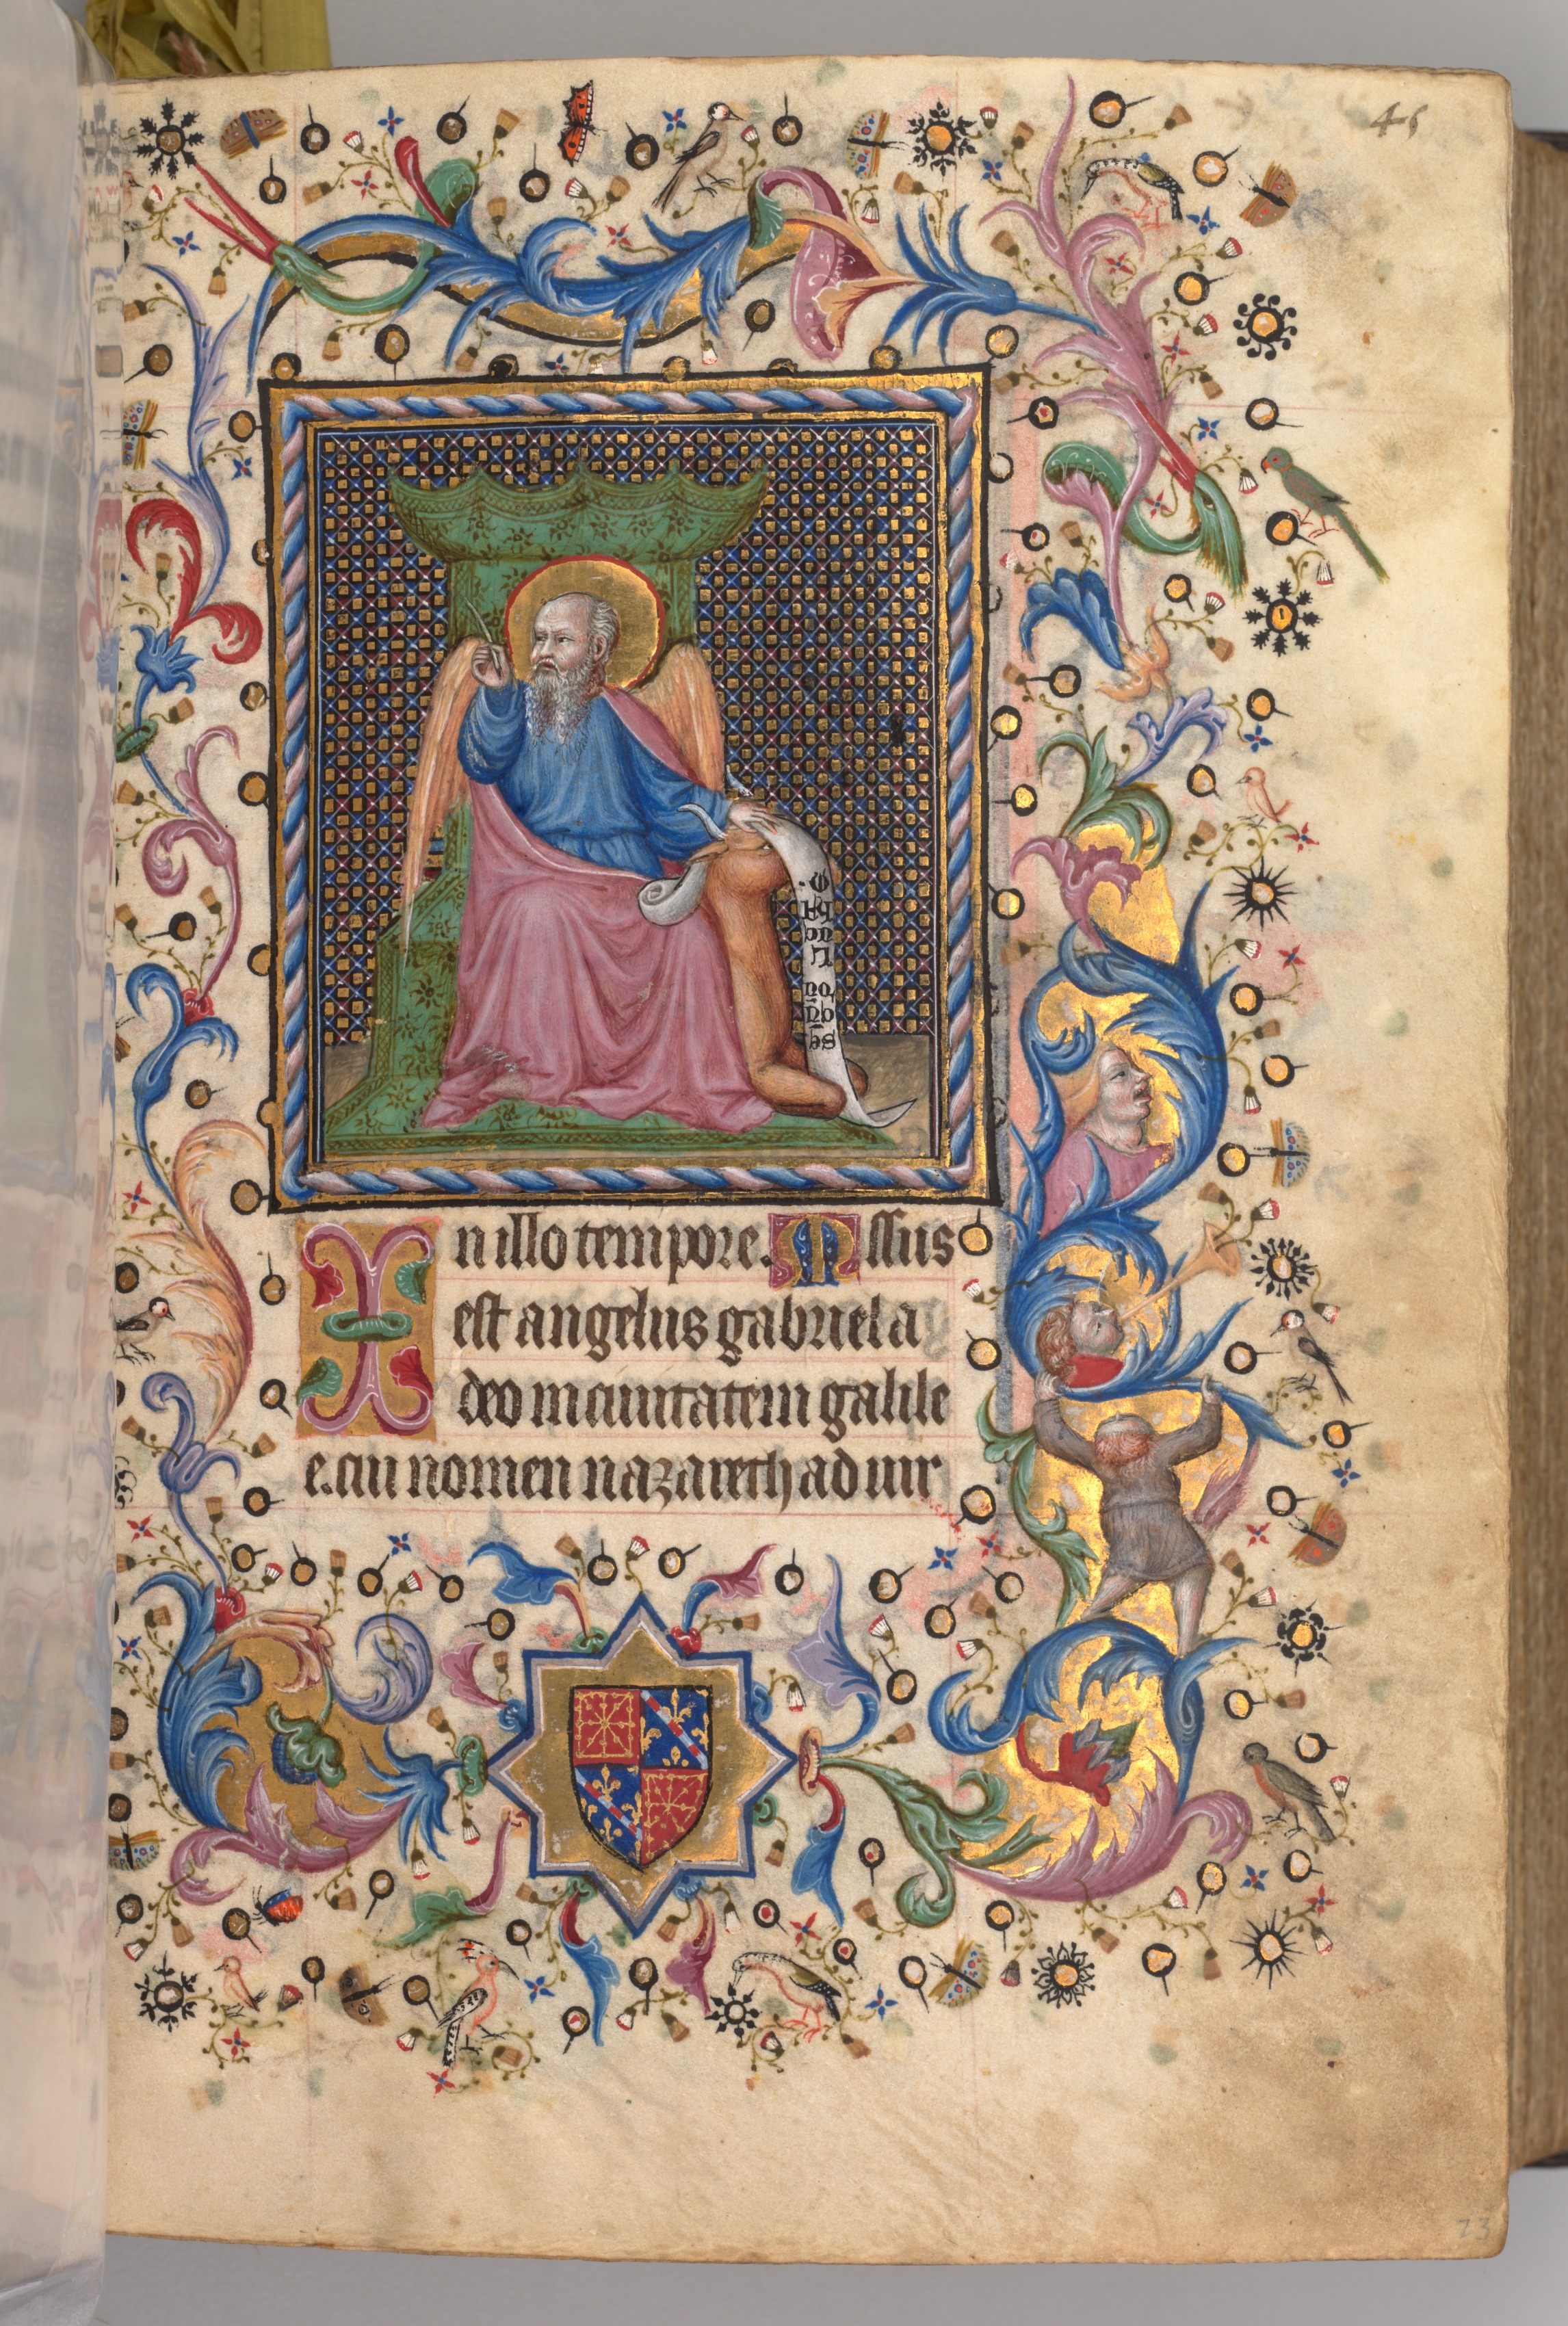 45
In illo tempore. Missus
est angelus gabriel a
deo in ciuitatem galile
e. cui nomen nazareth ad uir
23